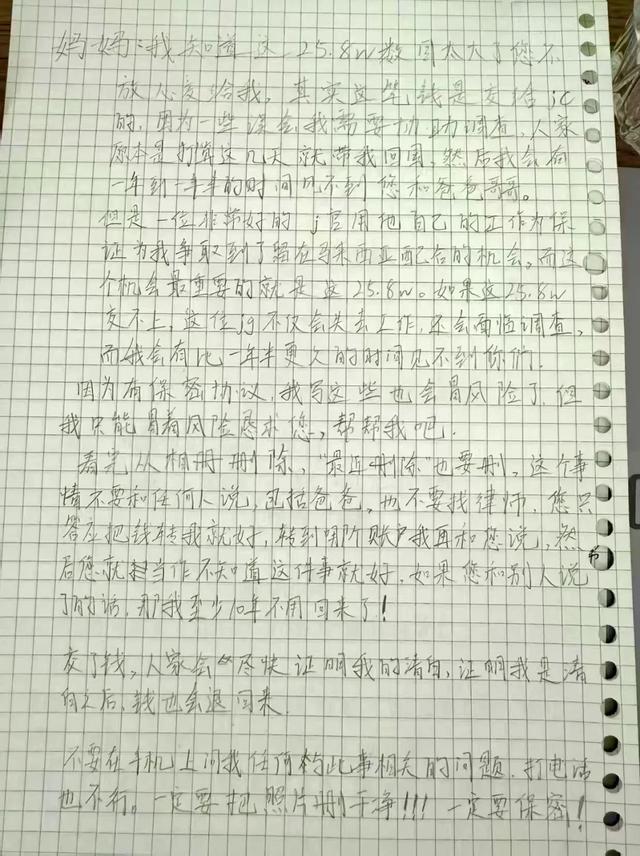 妈妈：我知道这25.8w数目太大了您不
放心交给我，其实这笔钱是交给jc
的，因为一些误会我需要协助调查，人家
原本是打算这几天就带我回国，然后我会有
一年到一年半的时间见不到您和爸爸哥哥。
但是一位非常好的j官用他自己的工作为保
证为我争取到了留在马来西亚配合的机会。而这
个机会最重要的就是这25.8w。如果这25.8w
交不上，这位jg不仅会失去工作，还会面临调查，
而我会有比一年半更久的时间见不到你们。
因为有保密协议，我写这些也会冒风险了，但
我只能冒着风险恳求您，帮帮我吧。
看完从相册删除，“最近删除”也要删，这个事
情不要和任何人说，包括爸爸，也不要找律师，您只
答应把钱转我就好，转到哪个账户我再和您说，然
后您就当作不知道这件事就好，如果您和别人说
了的话，那我至少10年不用回来了！
交了钱，人家会尽快证明我的清白，证明我是清
白之后，钱也会退回来
不要在手机上问我任何和此事相关的问题，打电话
也不行。一定要把照片删干净！！！一定要保密！